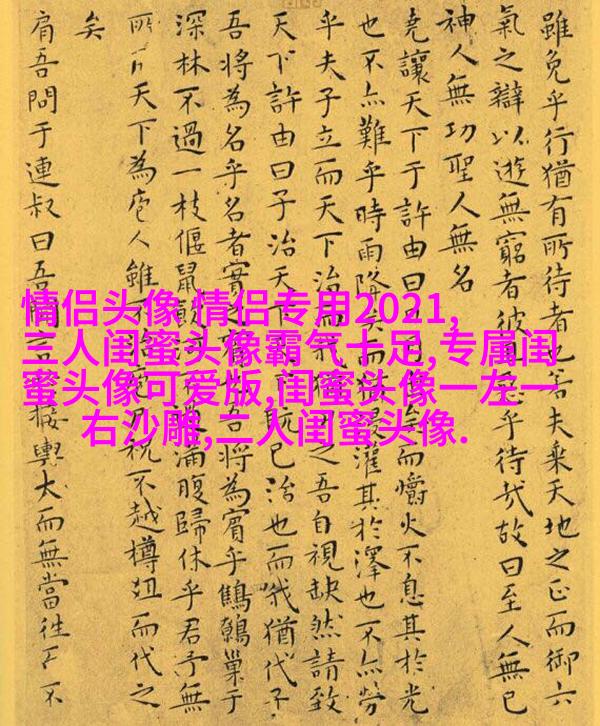 雖免乎行猶有所待者也若夫乘天地之正而御六
氣之辯以遊無窮者彼乎待哉故曰至人無己
神人無功聖人無名
堯讓天下于許由曰矣而爝火不息其於光
也不亦難乎時雨降矣而浸灌其於澤也不亦勞
乎夫子立而天下治而我之吾自視缺然請致
天下許由曰子治天下既已治也而我猶代子
吾將為名乎名者實吾將為賓乎鷦鷯巢于
深林不過一枝偃鼠飲河過滿腹歸休乎君予無
所天下為庖人雖不治祝不越樽俎而代之
矣
肩吾問于連叔曰吾聞接輿大而無當往而不
情侣头像,情侣专用2021,
三人闺蜜头像霸气十足,专属闺
蜜头像可爱版,闺蜜头像一左一
右沙雕,二人闺蜜头像.